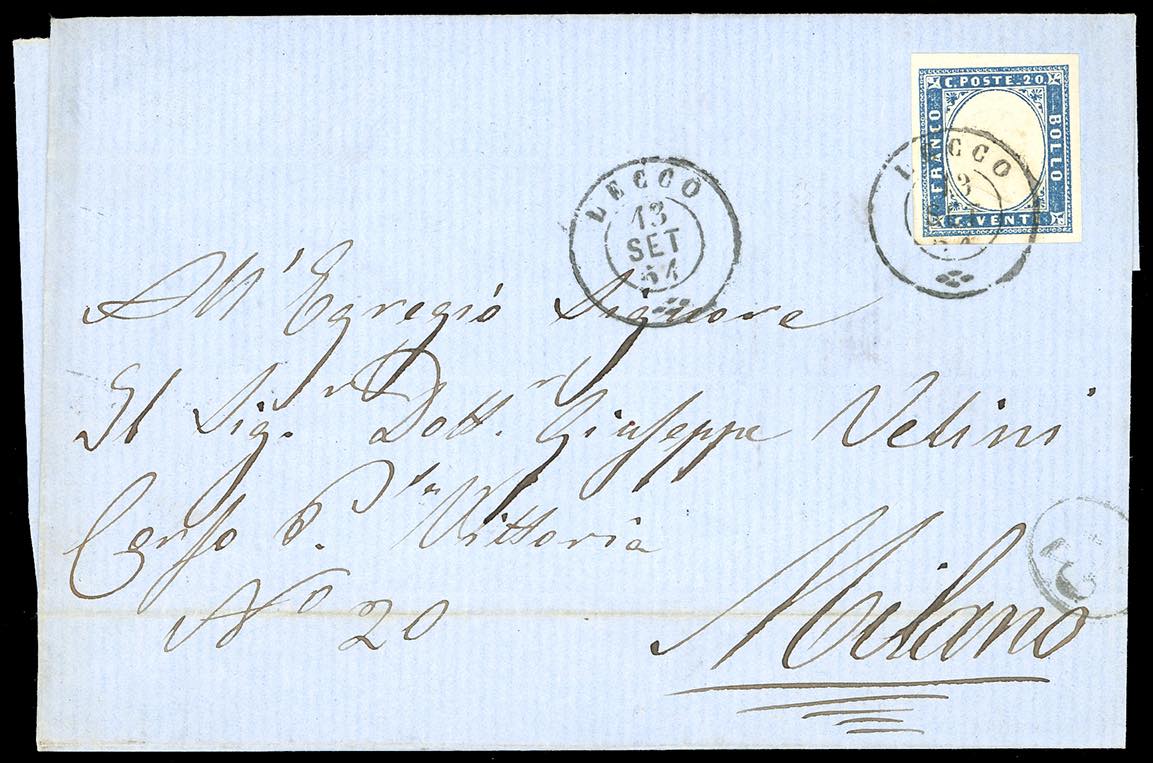 C. POSTE. 20
FRANCO
BOLLO
C. VENTI
LECCO
13
SET
61
LECCO
All' Egregio Signore
Il Sig.r Dott.r Giuseppe Velini
Corso P.ta Vittoria
No 20
Milano